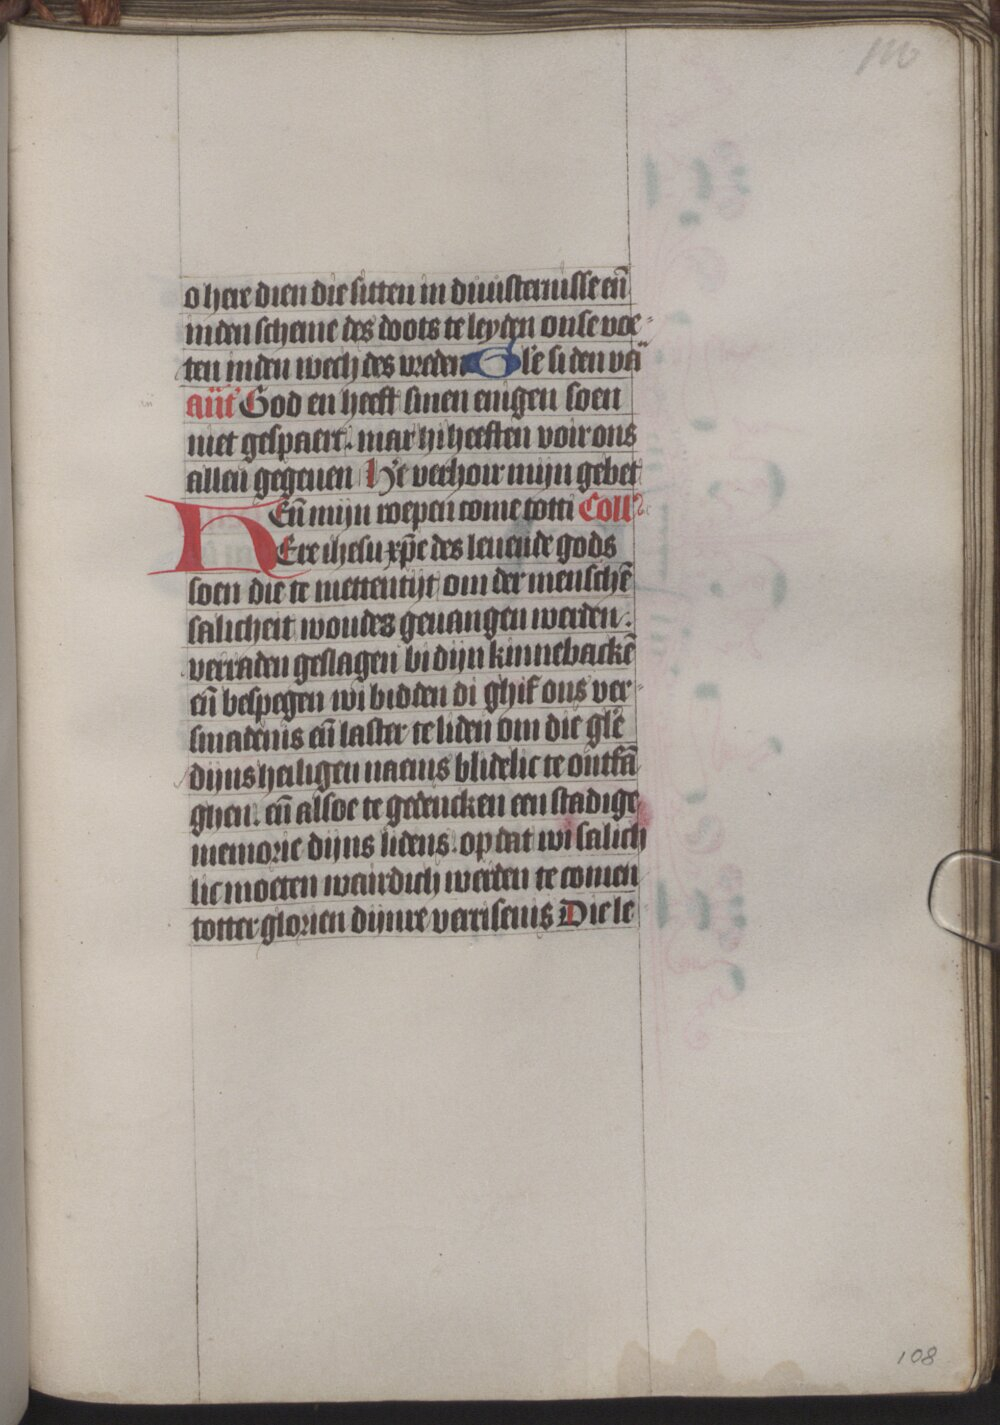 110
o here dien die sitten in duusternisse eñ
inden scheme des doots te leyden onse voe-
ten inden wech des vreden Gľe si den vā
añt' God en heeft sinen enigen soen
niet gespaert. mar hi heeften voir ons
allen gegeuen H'e verhoir mijn gebet
Eñ mijn roepen come totti Coll'
HEre ihesu xp̄e des leuende gods
soen die te mettentijt om der menschē
salicheit woudes geuangen werden.
verraden geslagen bi dijn kinnebackē
eñ bespegen wi bidden di ghif ons ver-
smadenis eñ laster te liden om die gľe
dijns heiligen naems blidelic te ontfā
ghen. eñ alsoe te gedencken een stadige
memorie dijns lidens. op dat wi salich
lic moeten weirdich werden te comen
totter glorien dijnre verrisenis Die le
108